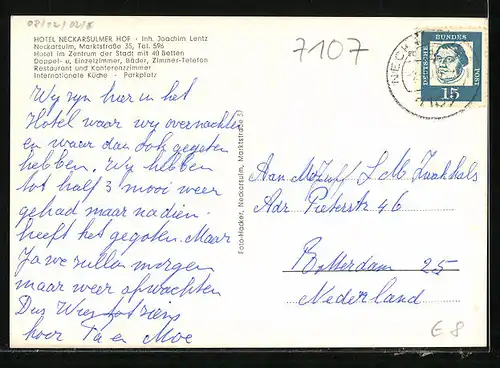 08/12/0218
HOTEL NECKARSULMER HOF · Inh. Joachim Lentz
Neckarsulm, Marktstraße 35, Tel. 596
Hotel im Zentrum der Stadt mit 40 Betten
Doppel- u. Einzelzimmer, Bäder, Zimmer-Telefon
Restaurant und Konferenzzimmer
Internationale Küche · Parkplatz
7107
DEUTSCHE BUNDESPOST
15
Wy zyn hier in het
Hotel waar wy overnachten
en waar dan ook gegeten
hebben. Wy hebben
tot half 3 mooi weer
gehad maar nadien
heeft het gegoten. Maar
Ja we zullen morgen
maar weer afwachten
Dus tot ziens
hoor Pa en Moe
Foto-Hacker, Neckarsulm, Marktstraße 31
Aan L M Zwakhals
Adr Pieterstr 46
Rotterdam 25
Nederland
€ 8